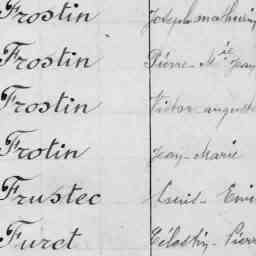 Frostin Joseph mathurin
Frostin Pierre-Mie Jean
Frostin Victor auguste
Frotin Jean-Marie
Frustec Louis-Emi
Furet Pierr